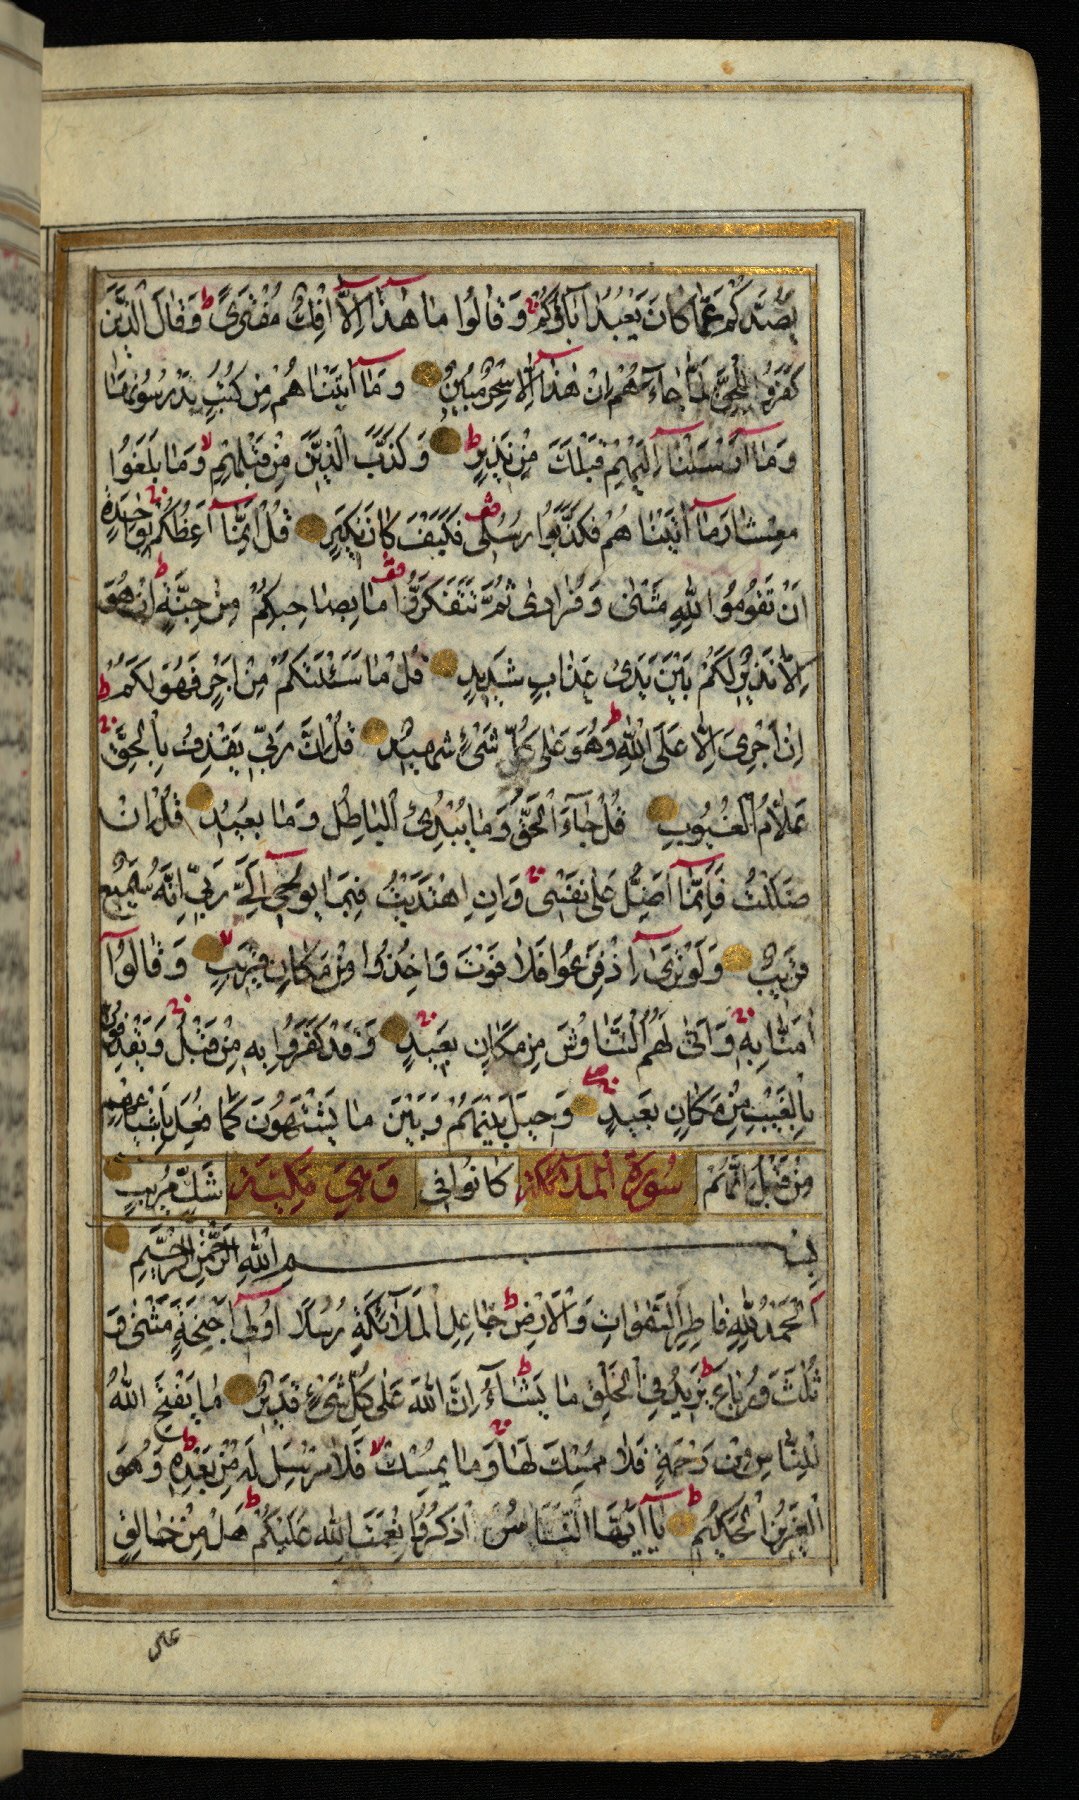 يَصُدَّكُمْ عَمَّا كَانَ يَعْبُدُ اٰبَاؤُكُمْ وَقَالُوا مَا هٰذَا اِلَّا اِفْكٌ مُفْتَرًى وَقَالَ الَّذِينَ
كَفَرُوا لِلْحَقِّ لَمَّا جَاءَهُمْ اِنْ هٰذَا اِلَّا سِحْرٌ مُبِينٌ وَمَا اٰتَيْنَاهُمْ مِنْ كُتُبٍ يَدْرُسُونَهَا
وَمَا اَرْسَلْنَا اِلَيْهِمْ قَبْلَكَ مِنْ نَذِيرٍ وَكَذَّبَ الَّذِينَ مِنْ قَبْلِهِمْ وَمَا بَلَغُوا
مِعْشَارَ مَا اٰتَيْنَاهُمْ فَكَذَّبُوا رُسُلِى فَكَيْفَ كَانَ نَكِيرِ قُلْ اِنَّمَا اَعِظُكُمْ بِوَاحِدَةٍ
اَنْ تَقُومُوا لِلّٰهِ مَثْنٰى وَفُرَادٰى ثُمَّ تَتَفَكَّرُوا مَا بِصَاحِبِكُمْ مِنْ جِنَّةٍ اِنْ هُوَ
اِلَّا نَذِيرٌ لَكُمْ بَيْنَ يَدَىْ عَذَابٍ شَدِيدٍ قُلْ مَا سَئَلْتُكُمْ مِنْ اَجْرٍ فَهُوَ لَكُمْ
اِنْ اَجْرِىَ اِلَّا عَلَى اللّٰهِ وَهُوَ عَلٰى كُلِّ شَىْءٍ شَهِيدٌ قُلْ اِنَّ رَبِّى يَقْذِفُ بِالْحَقِّ
عَلَّامُ الْغُيُوبِ قُلْ جَاءَ الْحَقُّ وَمَا يُبْدِئُ الْبَاطِلُ وَمَا يُعِيدُ قُلْ اِنْ
ضَلَلْتُ فَاِنَّمَا اَضِلُّ عَلٰى نَفْسِى وَاِنِ اهْتَدَيْتُ فَبِمَا يُوحِى اِلَىَّ رَبِّى اِنَّهُ سَمِيعٌ
قَرِيبٌ وَلَوْ تَرٰى اِذْ فَزِعُوا فَلَا فَوْتَ وَاُخِذُوا مِنْ مَكَانٍ قَرِيبٍ وَقَالُوا
اٰمَنَّا بِهِ وَاَنّٰى لَهُمُ التَّنَاوُشُ مِنْ مَكَانٍ بَعِيدٍ وَقَدْ كَفَرُوا بِهِ مِنْ قَبْلُ وَيَقْذِفُونَ
بِالْغَيْبِ مِنْ مَكَانٍ بَعِيدٍ وَحِيلَ بَيْنَهُمْ وَبَيْنَ مَا يَشْتَهُونَ كَمَا فُعِلَ بِاَشْيَاعِهِمْ
مِنْ قَبْلُ اِنَّهُمْ سُورَةُ الْمَلَائِكَةِ كَانُوا فِى وَهِىَ مَكِّيَّة شَكٍّ مُرِيبٍ
بِسْمِ اللّٰهِ الرَّحْمٰنِ الرَّحِيمِ
اَلْحَمْدُ لِلّٰهِ فَاطِرِ السَّمٰوَاتِ وَالْاَرْضِ جَاعِلِ الْمَلَائِكَةِ رُسُلًا اُولِى اَجْنِحَةٍ مَثْنٰى وَ
ثُلٰثَ وَرُبَاعَ يَزِيدُ فِى الْخَلْقِ مَا يَشَاءُ اِنَّ اللّٰهَ عَلٰى كُلِّ شَىْءٍ قَدِيرٌ مَا يَفْتَحِ اللّٰهُ
لِلنَّاسِ مِنْ رَحْمَةٍ فَلَا مُمْسِكَ لَهَا وَمَا يُمْسِكْ فَلَا مُرْسِلَ لَهُ مِنْ بَعْدِهِ وَهُوَ
الْعَزِيزُ الْحَكِيمُ يَا اَيُّهَا النَّاسُ اذْكُرُوا نِعْمَتَ اللّٰهِ عَلَيْكُمْ هَلْ مِنْ خَالِقٍ